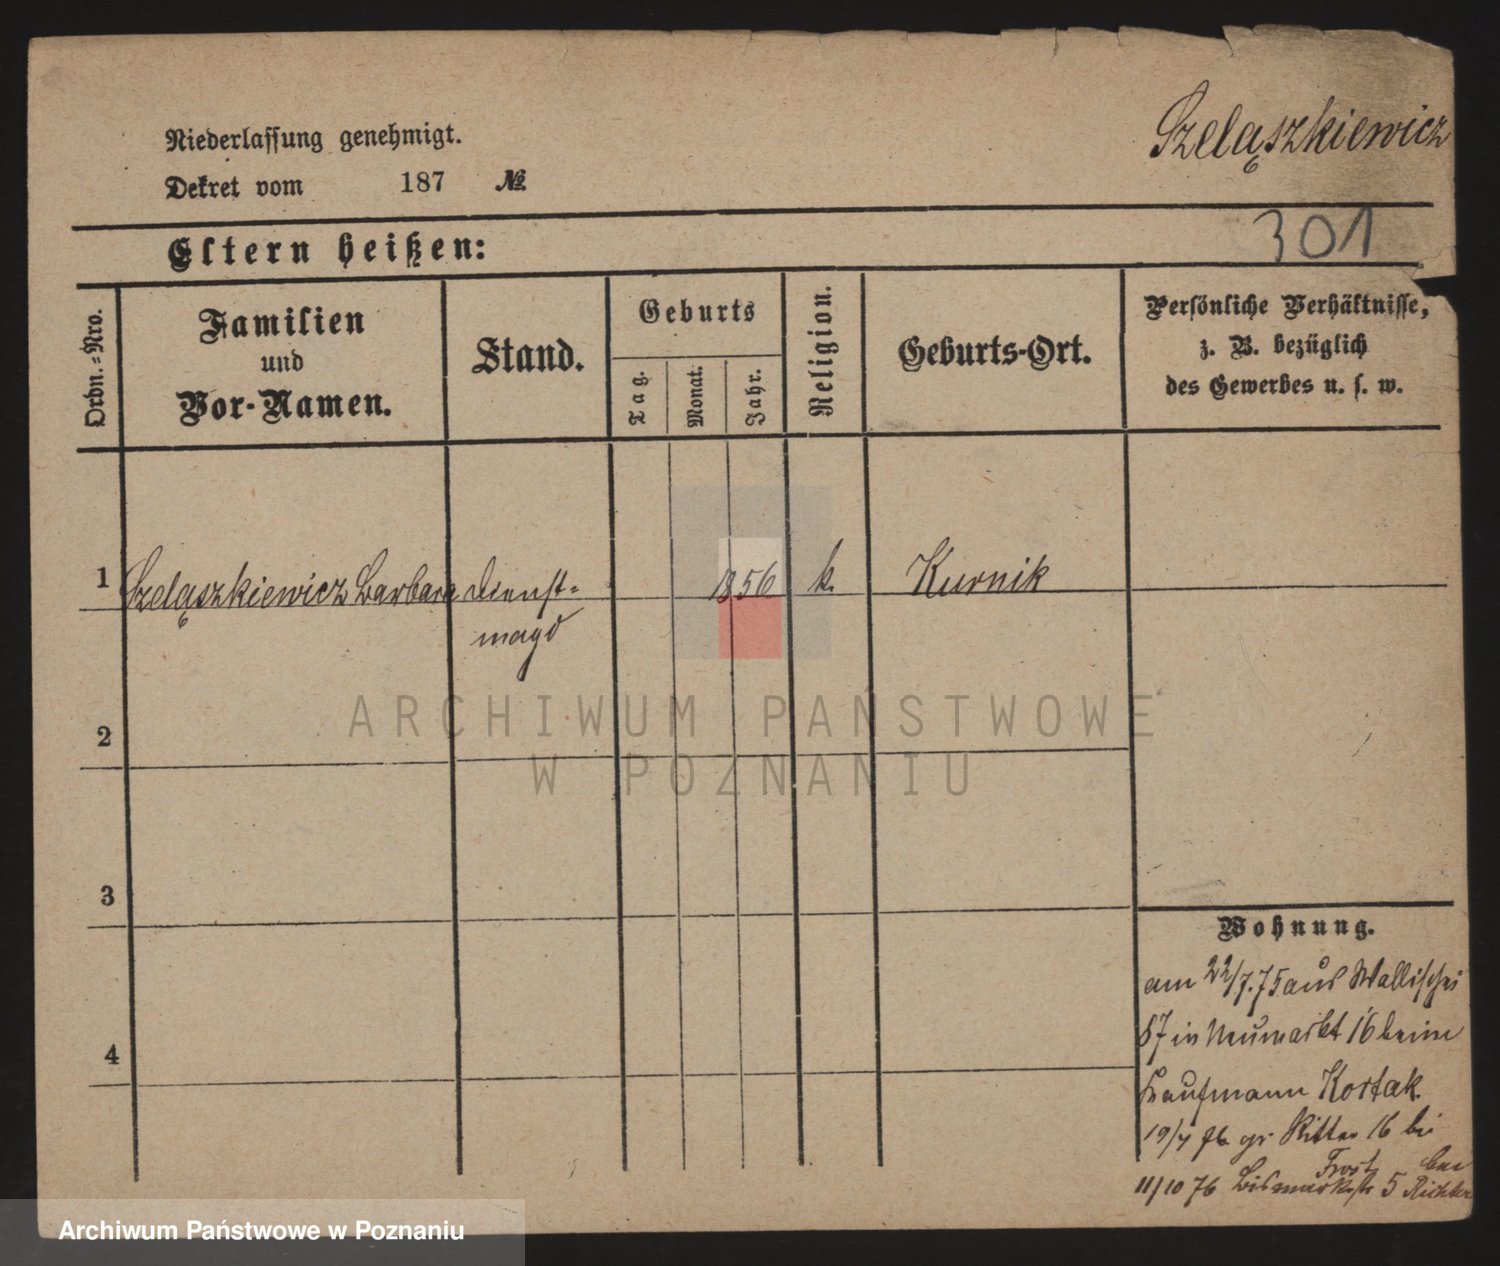 Szelązkiewicz
Niederlassung genehmigt.
Dekret vom 187 №
301
Eltern heißen:
Ordn.-Nro.
Familien
und
Vor-Namen.
Stand.
Geburts
Tag.
Monat.
Jahr.
Religion.
Geburts-Ort.
Persönliche Verhältnisse,
z. B. bezüglich
des Gewerbes u. s. w.
1 Szelązkiewicz Barbara Dienst-
magd
1856 k. Kurnik
2
3
4
Wohnung.
am 22/7. 75 aus Wallischei
57 in Neumarkt 16 beim
Kaufmann Kortak
19/4 76 gr Ritter 16 bei
Frost
11/10 76 Bismarckstr 5 bei Richter
ARCHIWUM PAŃSTWOWE
W POZNANIU
Archiwum Państwowe w Poznaniu